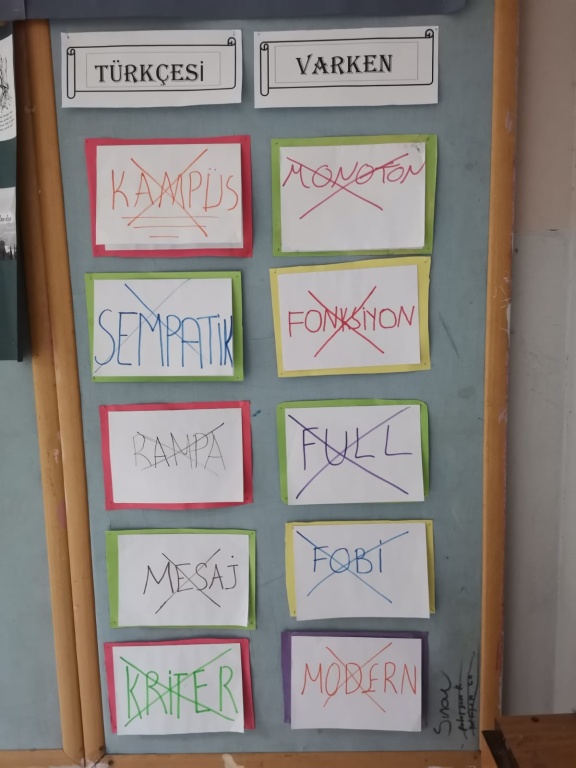 TÜRKÇESİ VARKEN
KAMPÜS
MONOTON
SEMPATİK
FONKSİYON
RAMPA
FULL
MESAJ
FOBİ
KRİTER
MODERN
Sınav